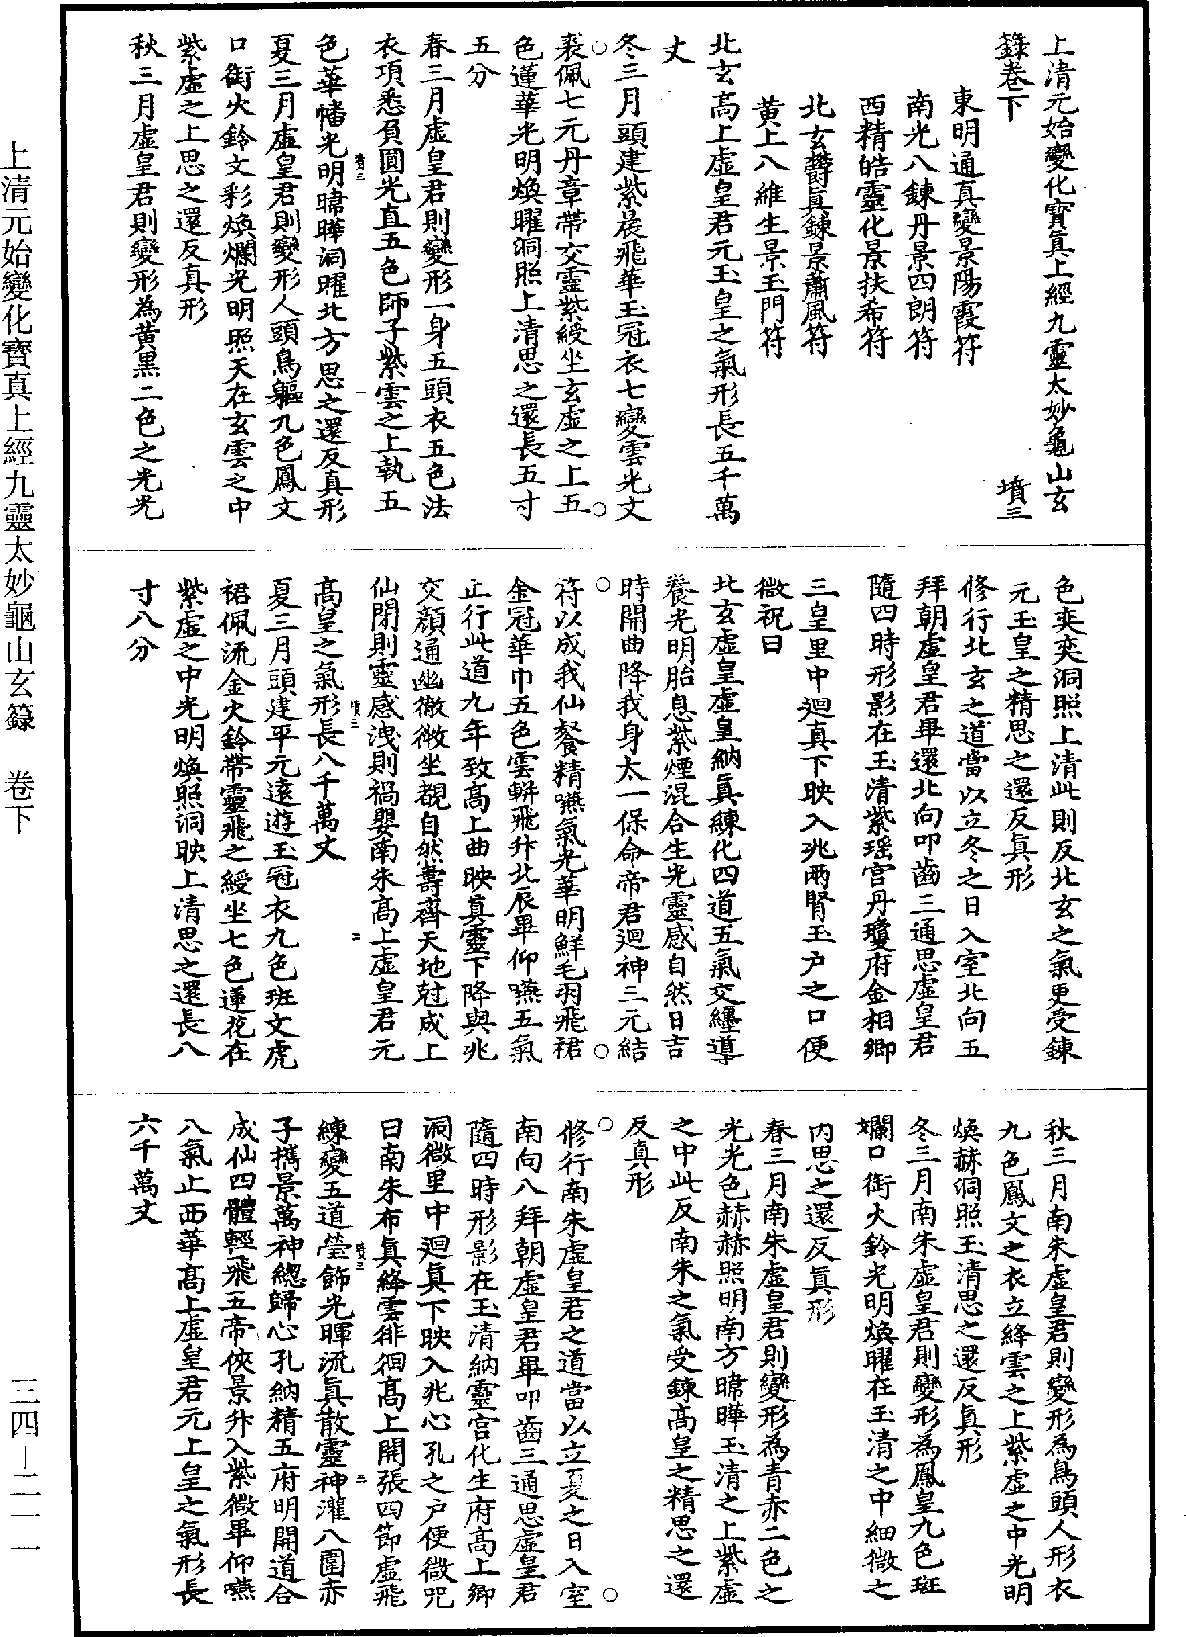 上清元始變化寶真上經九靈太妙龜山玄
籙卷下　墳三
東明通真變景陽霞符
南光八鍊丹景四朗符
西精皓靈化景扶希符
北玄鬱真鍊景蕭風符
黃上八維生景玉門符
北玄高上虛皇君元玉皇之氣形長五千萬
丈
冬三月頭建紫晨飛華玉冠衣七變雲光文
裘佩七元丹章帶交靈紫綬坐玄虛之上五
色蓮華光明煥曜洞照上清思之還長五寸
五分
春三月虛皇君則變形一身五頭衣五色法
衣項悉負圓光直五色師子紫雲之上執五
色華幡光明暐曄洞曜北方思之還反真形
夏三月虛皇君則變形人頭鳥軀九色鳳文
口銜火鈴文彩煥爛光明照天在玄雲之中
紫虛之上思之還反真形
秋三月虛皇君則變形為黃黑二色之光光
色奕奕洞照上清此則反北玄之氣更受鍊
元玉皇之精思之還反真形
修行北玄之道當以立冬之日入室北向五
拜朝虛皇君畢還北向叩齒三通思虛皇君
隨四時形影在玉清紫瑤宮丹瓊府金相鄉
三皇里中迴真下映入兆兩腎玉戶之口便
微祝曰
北玄虛皇虛皇納真練化四道五氣交纏導
養光明胎息紫煙混合生光靈感自然日吉
時開曲降我身太一保命帝君迴神三元結
符以成我仙餐精嚥氣光華明鮮毛羽飛裙
金冠華巾五色雲軿飛升北辰畢仰嚥五氣
止行此道九年致高上曲映真靈下降與兆
交顏通幽徹微坐覩自然壽齊天地尅成上
仙閉則靈感洩則禍嬰南朱高上虛皇君元
高皇之氣形長八千萬丈
夏三月頭建平元遠遊玉冠衣九色班文虎
裙佩流金火鈴帶靈飛之綬坐七色蓮花在
紫虛之中光明煥照洞映上清思之還長八
寸八分
秋三月南朱虛皇君則變形為鳥頭人形衣
九色鳳文之衣立絳雲之上紫虛之中光明
煥赫洞照玉清思之還反真形
冬三月南朱虛皇君則變形為鳳皇九色斑
斕口銜火鈴光明煥曜在玉清之中細微之
內思之還反真形
春三月南朱虛皇君則變形為青赤二色之
光光色赫赫照明南方暐曄玉清之上紫虛
之中此反南朱之氣受鍊高皇之精思之還
反真形
修行南朱虛皇君之道當以立夏之日入室
南向八拜朝虛皇君畢叩齒三通思虛皇君
隨四時形影在玉清納靈宮化生府高上鄉
洞微里中迴真下映入兆心孔之戶便微咒
曰南朱布真絳雲徘徊高上開張四節虛飛
練變五道瑩飾光暉流真散靈神灌八圍赤
子攜景萬神總歸心孔納精五府明開道合
成仙四體輕飛五帝俠景升入紫微畢仰嚥
八氣止西華高上虛皇君元上皇之氣形長
六千萬丈
上清元始變化寶真上經九靈太妙龜山玄籙　卷下
三四—二一一